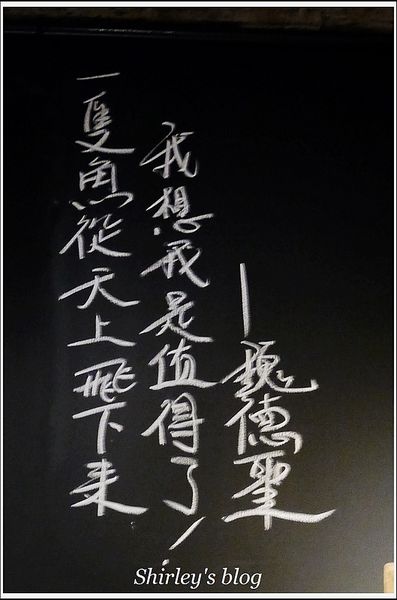 一隻魚從天上飛下來
我想我是值得了!
—魏德聖
Shirley's blog